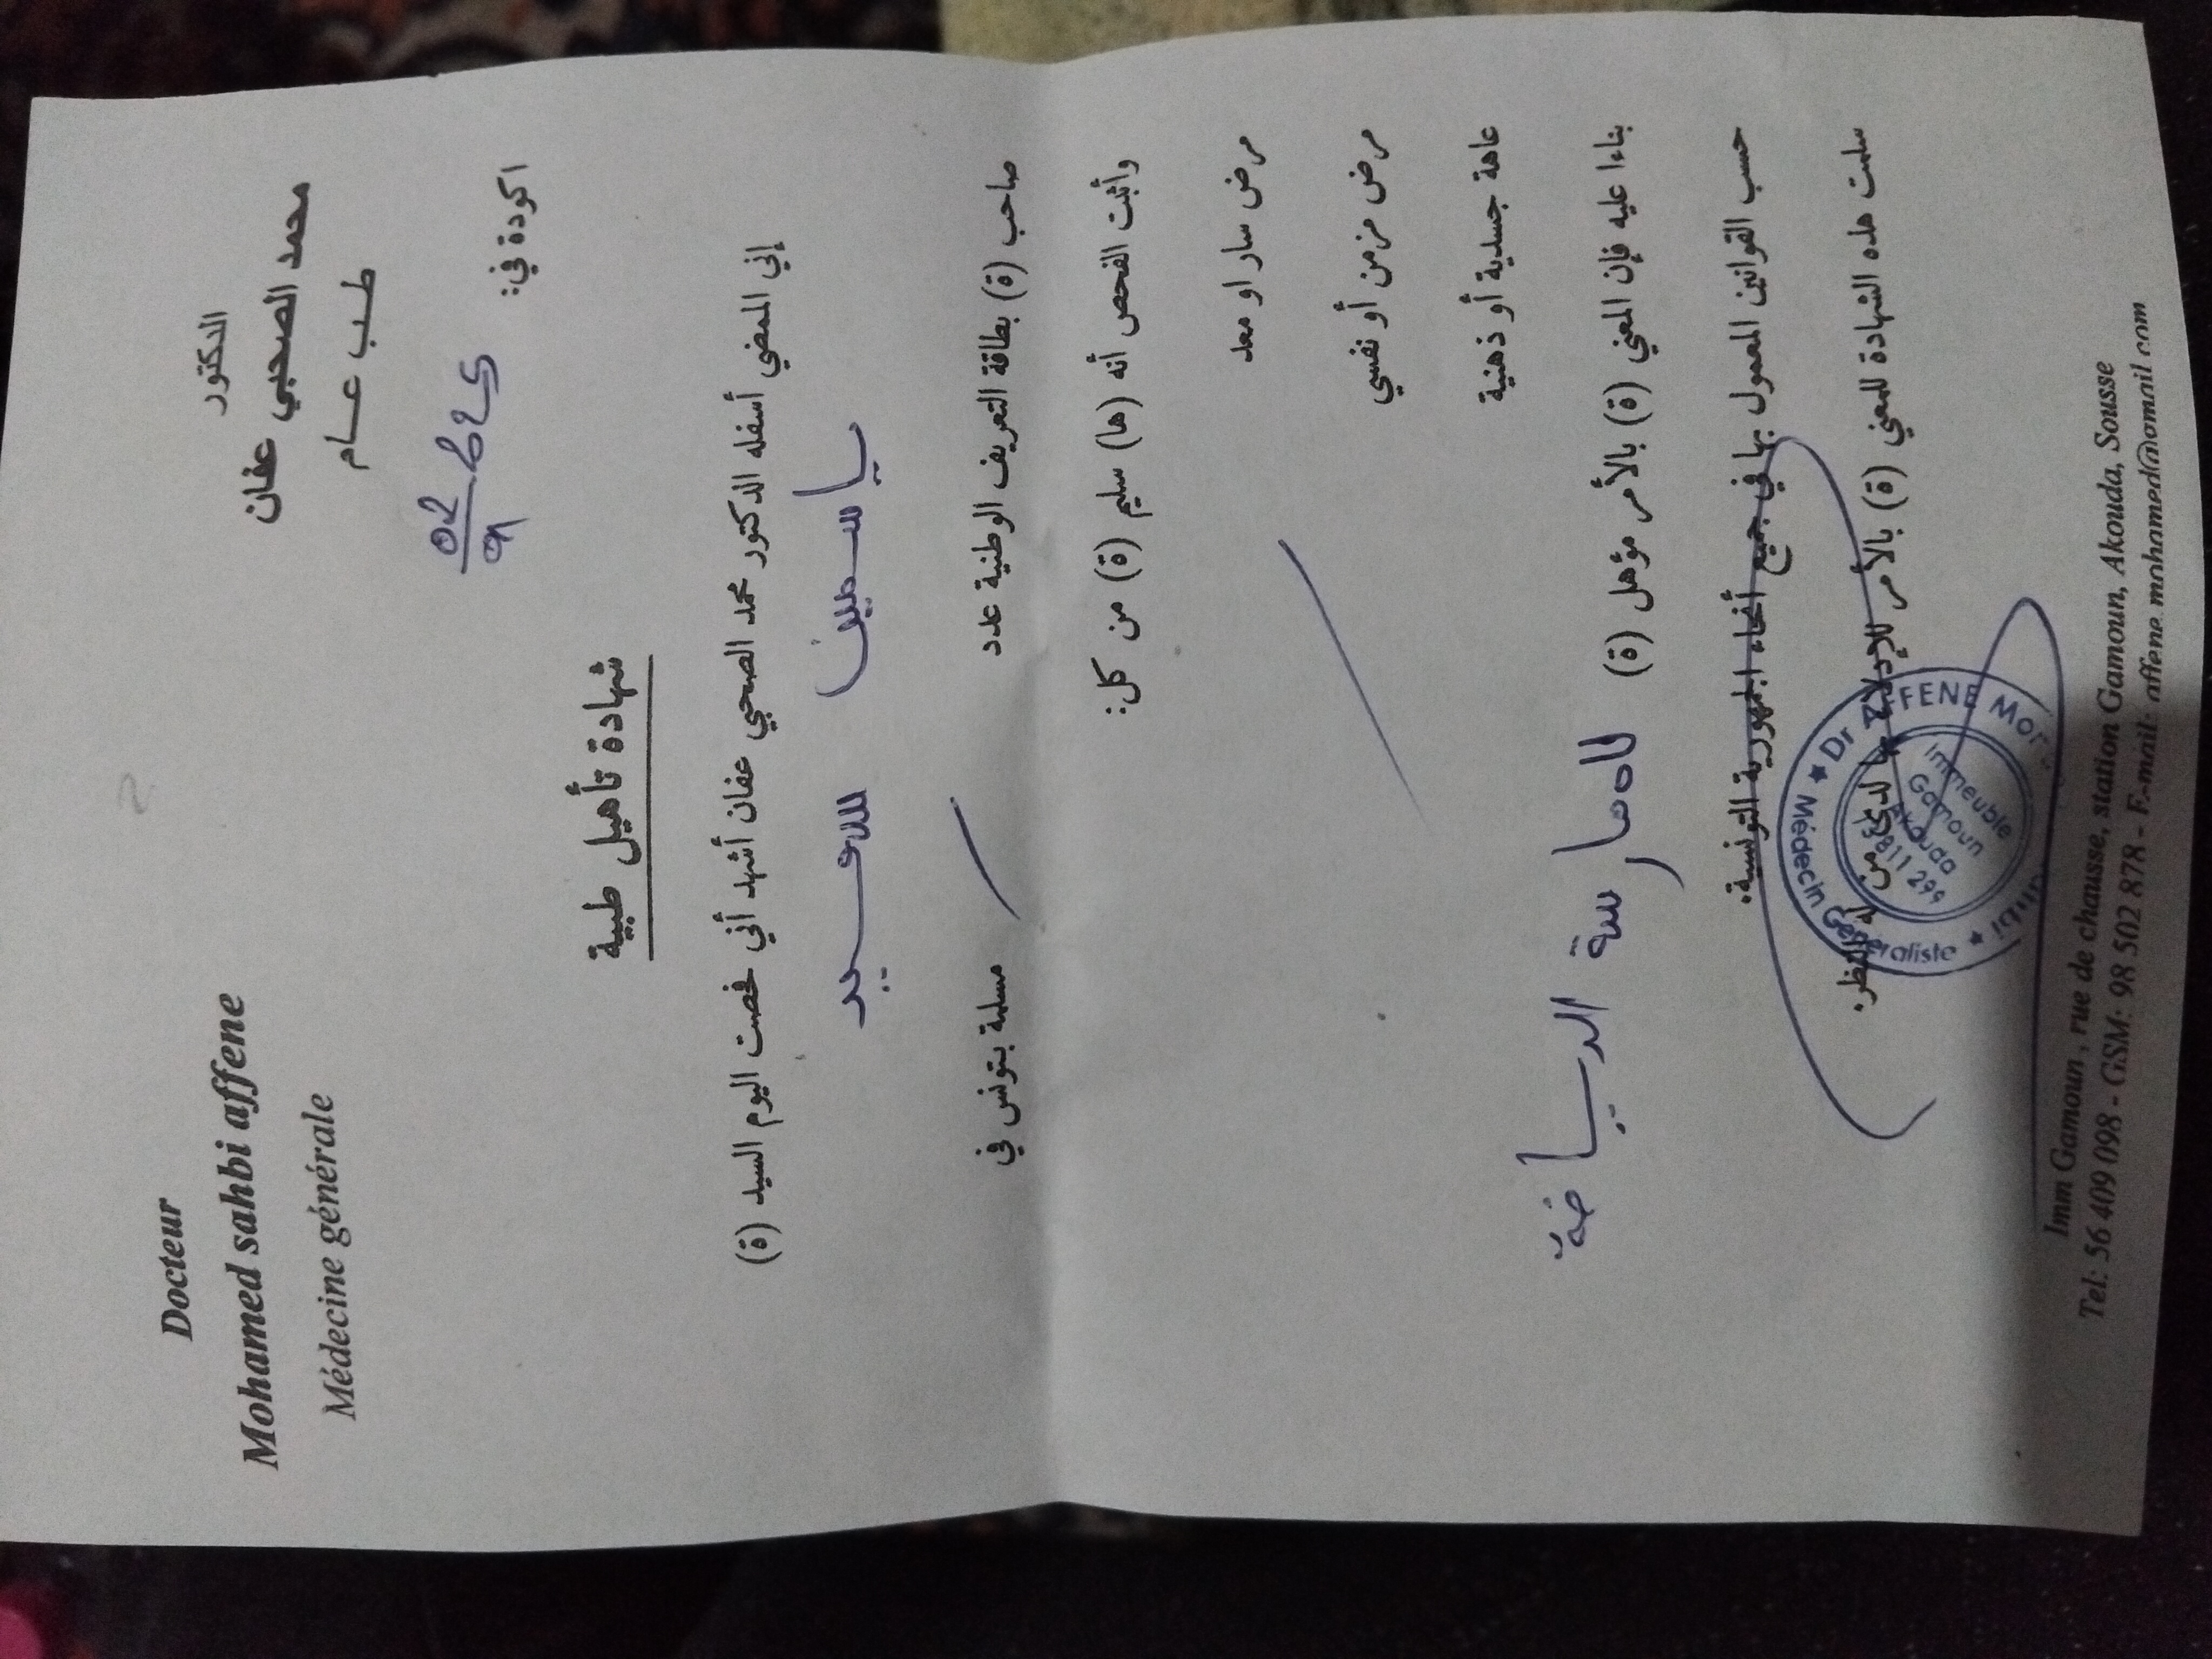 Docteur
Mohamed sahbi affene
Médecine générale
الدكتور
محمد الصحبي عفان
طب عام
اكودة في:
شهادة تأهيل طبية
إني الممضي أسفله الدكتور محمد الصحبي عفان أشهد أني فحصت اليوم السيد (ة)
ياسمين سعيد
صاحب (ة) بطاقة التعريف الوطنية عدد مسلمة بتونس في
وأثبت الفحص أنه (ها) سليم (ة) من كل:
مرض سار او معد
مرض مزمن أو نفسي
عاهة جسدية أو ذهنية
بناءا عليه فإن المعني (ة) بالأمر مؤهل (ة) لممارسة الرياضة
حسب القوانين المعمول بها في جميع أنحاء الجمهورية التونسية.
سلمت هذه الشهادة للمعني (ة) بالأمر للإدلاء بها لدى من له النظر.
Dr AFFENE
Médecin Généraliste
Immeuble
Gamoun
Akouda
Imm Gamoun , rue de chausse, station Gamoun, Akouda, Sousse
Tel: 56 409 098 - GSM: 98 502 878 - E-mail: affene.mohamed@gmail.com